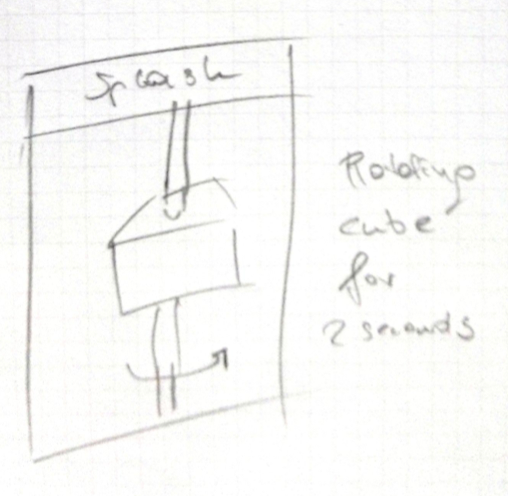 Splash
Rotating
cube
for
2 seconds